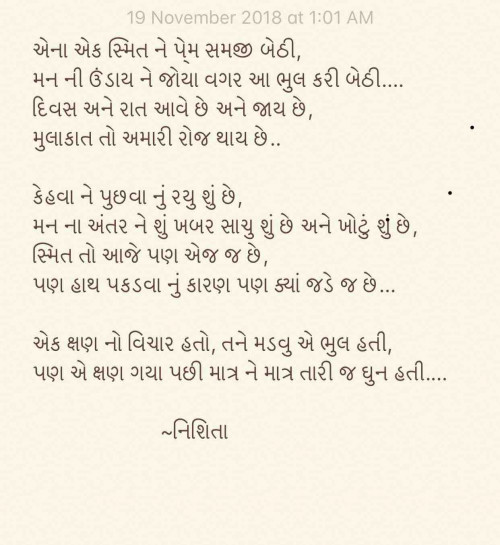 19 November 2018 at 1:01 AM
એના એક સ્મિત ને પ્રેમ સમજી બેઠી,
મન ની ઉંડાય ને જોયા વગર આ ભુલ કરી બેઠી....
દિવસ અને રાત આવે છે અને જાય છે,
મુલાકાત તો અમારી રોજ થાય છે..
કેહવા ને પુછવા નું રયુ શું છે,
મન ના અંતર ને શું ખબર સાચુ શું છે અને ખોટું શું છે,
સ્મિત તો આજે પણ એજ જ છે,
પણ હાથ પકડવા નું કારણ પણ ક્યાં જડે જ છે...
એક ક્ષણ નો વિચાર હતો, તને મડવુ એ ભુલ હતી,
પણ એ ક્ષણ ગયા પછી માત્ર ને માત્ર તારી જ ધુન હતી....
~નિશિતા